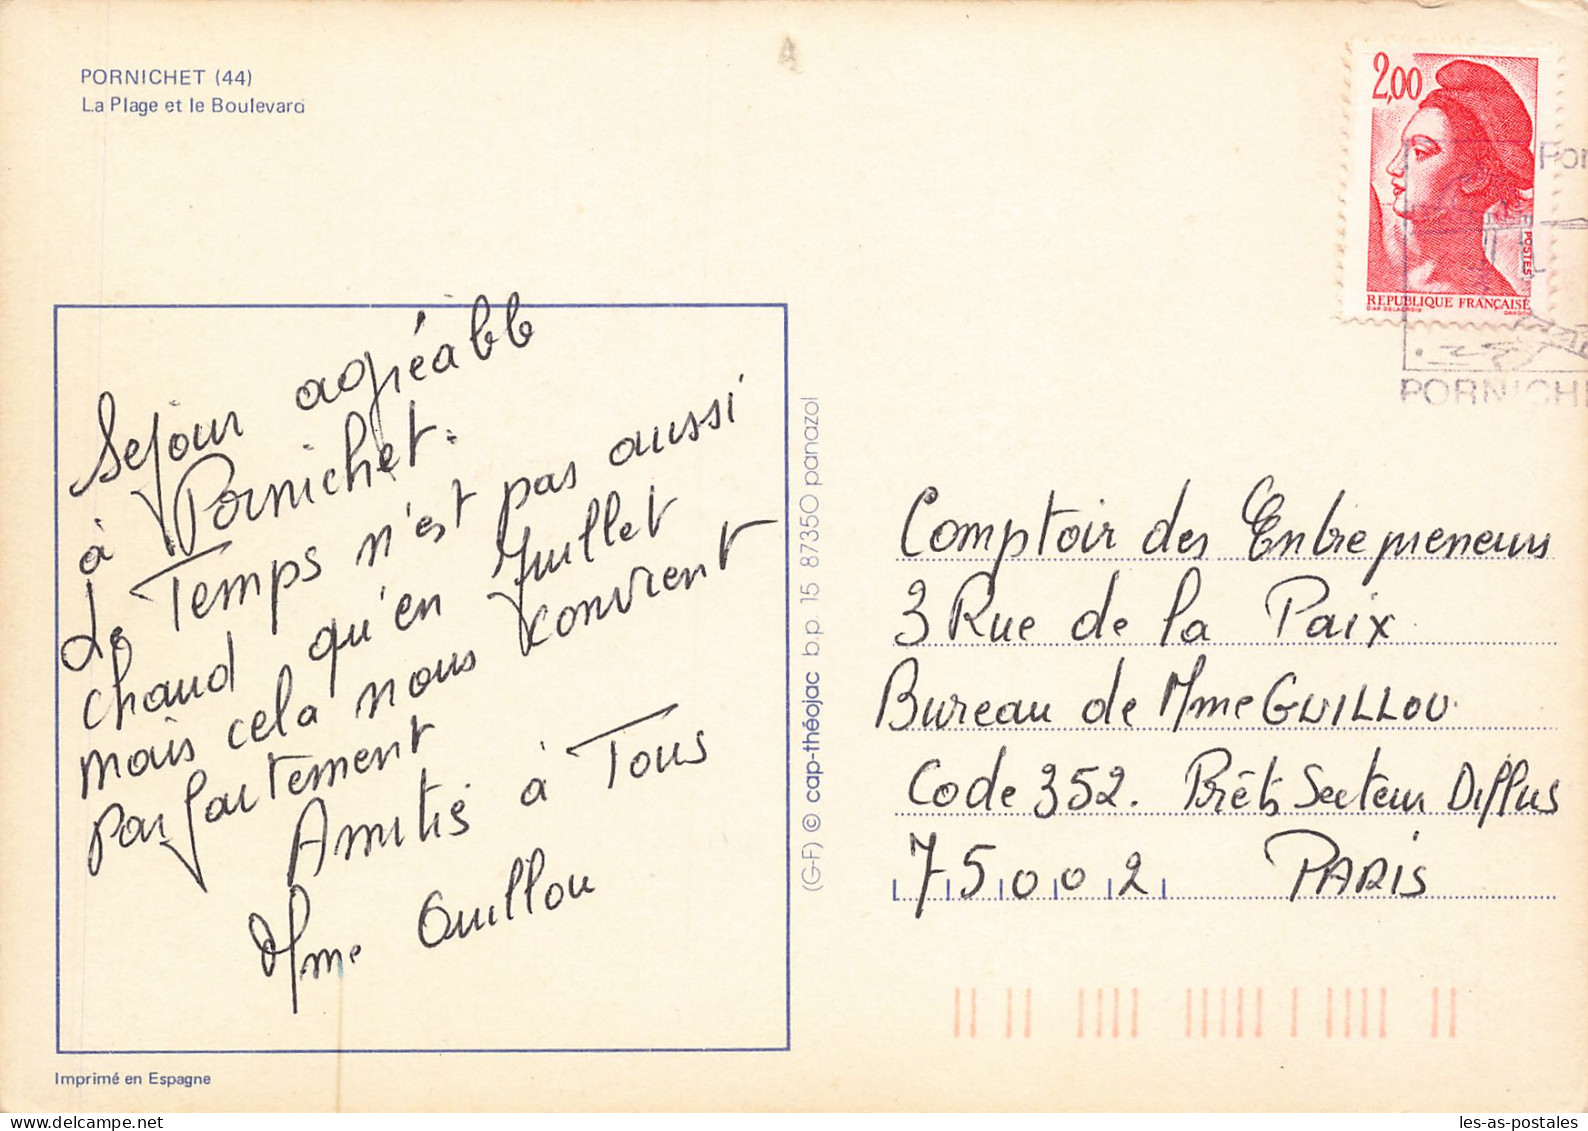 PORNICHET (44)
La Plage et le Boulevard
2,00
POSTES
REPUBLIQUE FRANÇAISE
D'AP. DELACROIX GANDON
Por
PORNICHE
Séjour agréable
à Pornichet.
Le Temps n'est pas aussi
chaud qu'en Juillet
mais cela nous convient
parfaitement
Amitiés à Tous
Mme Guillou
(G-F) © cap-théojac b.p. 15 87350 panazol
Comptoir des Entrepreneurs
3 Rue de la Paix
Bureau de Mme GUILLOU
Code 352. Prêts Secteur Diffus
75002 PARIS
Imprimé en Espagne
les-as-postales